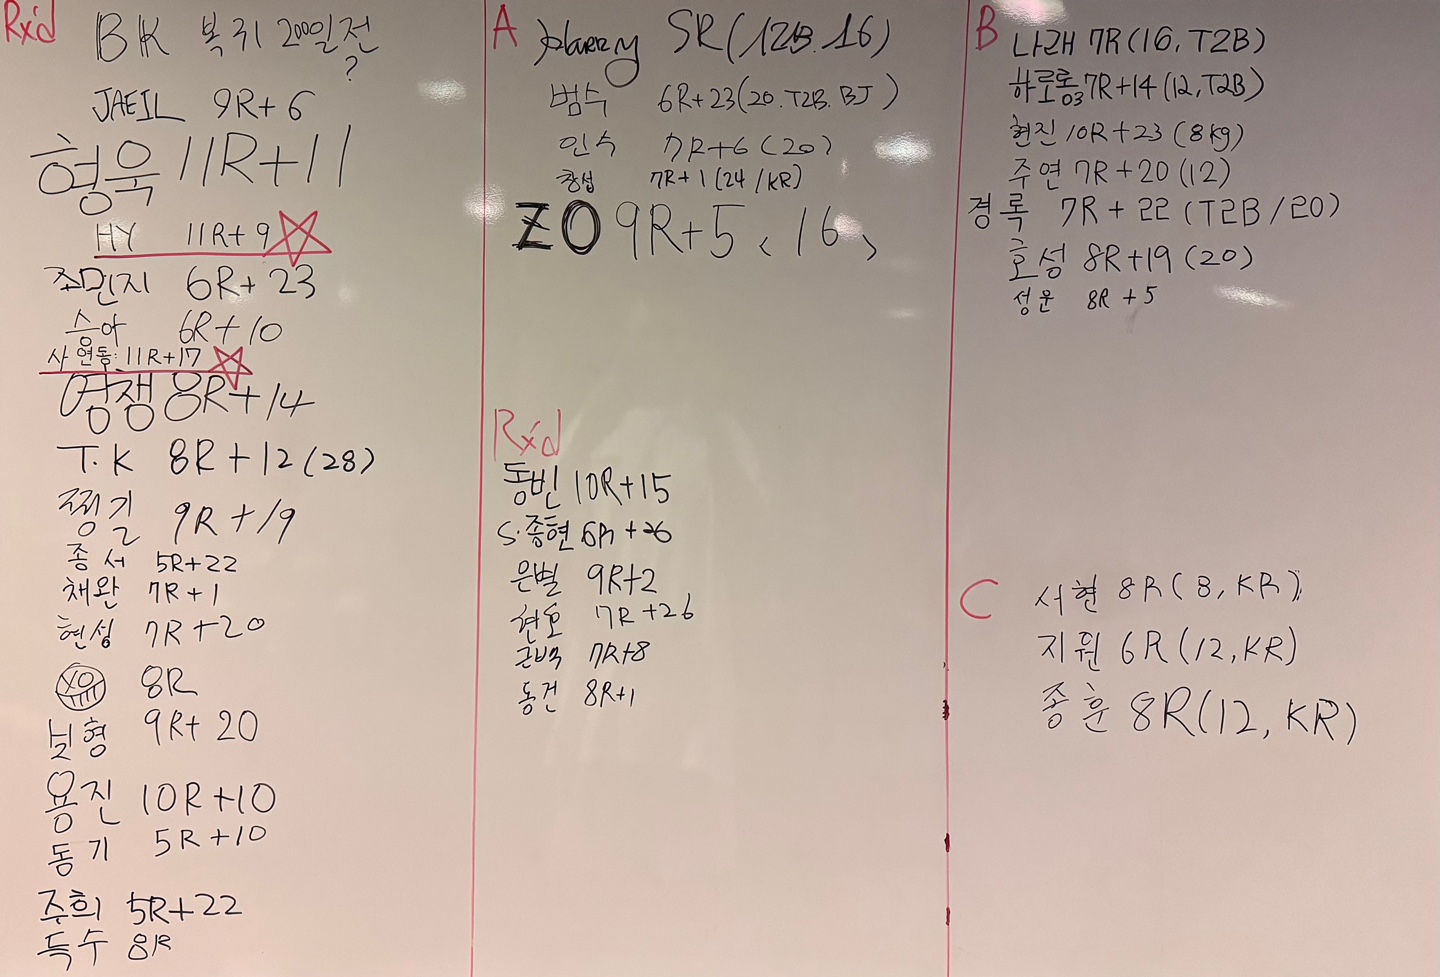 Rx'd
BK 복귀 200일전
?
JAEIL 9R+6
형욱 11R+11
HY 11R+9
조민지 6R+23
승아 6R+10
사 연동: 11R+17
영쟁 8R+14
T.K 8R+12(28)
찡길 9R+19
종서 5R+22
채완 7R+1
현성 7R+20
XO 8R
보형 9R+20
용진 10R+10
동기 5R+10
주희 5R+22
득수 8R
A
Harry 5R(12B.16)
범수 6R+23(20.T2B.BJ)
인수 7R+6(20)
창섭 7R+1(24/KR)
ZO 9R+5(16)
Rx'd
동빈 10R+15
S.종현 6R+26
은별 9R+2
현호 7R+26
근백 7R+8
동건 8R+1
B
나래 7R(16,T2B)
하로롱03 7R+14(12,T2B)
현진 10R+23(8kg)
주연 7R+20(12)
경록 7R+22(T2B/20)
호성 8R+19(20)
성운 8R+5
C
서현 8R(8,KR)
지원 6R(12,KR)
종훈 8R(12,KR)